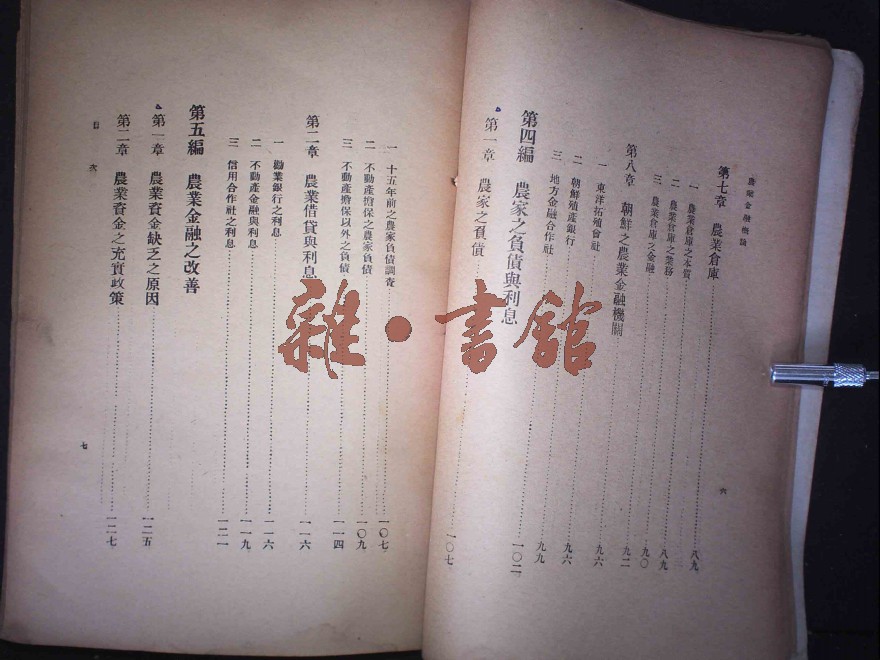 農業金融概論
第七章 農業倉庫……八九
一 農業倉庫之本質……八九
二 農業倉庫之業務……八九
三 農業倉庫之金融……九〇
第八章 朝鮮之農業金融機關……九二
一 東洋拓殖會社……九六
二 朝鮮殖產銀行……九六
三 地方金融合作社……九九
第四編 農家之負債與利息……一〇二
第一章 農家之負債……一〇七
六
一 十五年前之農家負債調查……一〇七
二 不動產擔保之農家負債……一〇九
三 不動產擔保以外之負債……一一四
第二章 農業借貸與利息……一一六
一 勸業銀行之利息……一一六
二 不動產金融與利息……一一九
三 信用合作社之利息……一二一
第五編 農業金融之改善
第一章 農業資金缺乏之原因……一二五
第二章 農業資金之充實政策……一二七
目次
七
雜·書館